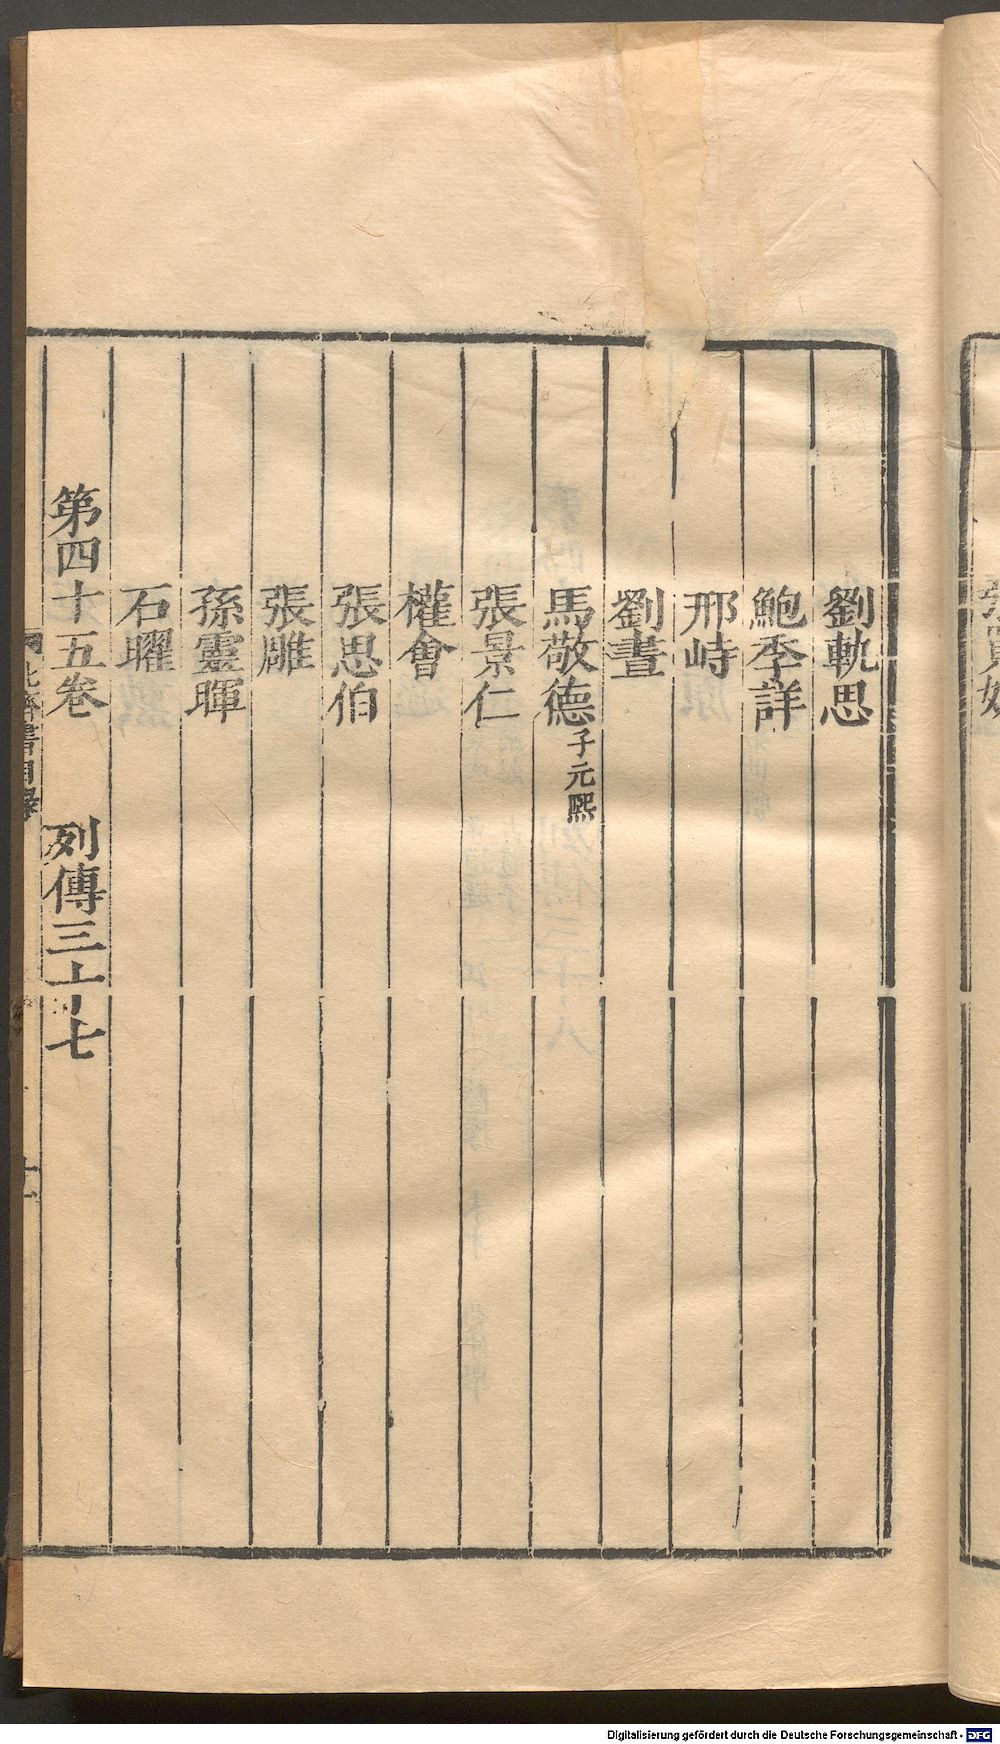 劉軌思
鮑季詳
邢峙
劉晝
馬敬德子元熙
張景仁
權會
張思伯
張雕
孫靈暉
石曜
第四十五卷 列傳三十七
北齊書目錄
Digitalisierung gefördert durch die Deutsche Forschungsgemeinschaft - DFG